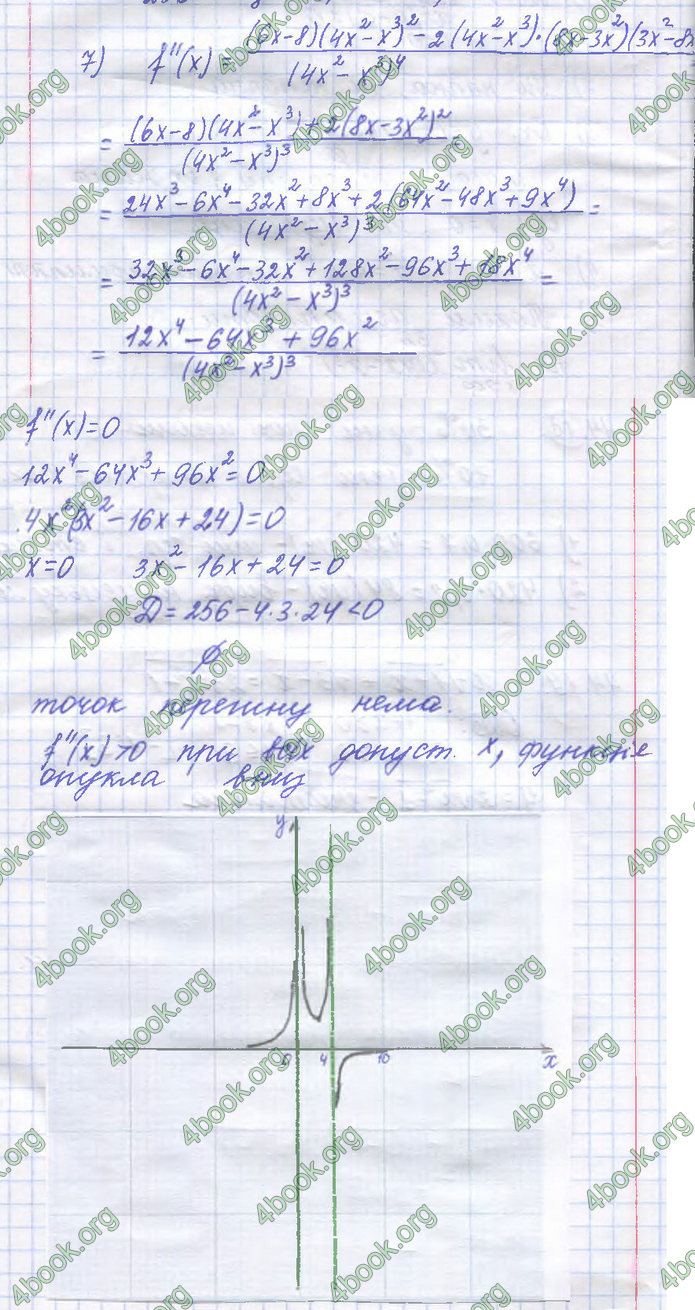 7) f''(x) = (6x-8)(4x²-x³)² - 2(4x²-x³)·(8x-3x²)(3x²-8x / (4x²-x³)⁴
= (6x-8)(4x²-x³)+2(8x-3x²)² / (4x²-x³)³
= 24x³-6x⁴-32x²+8x³+2(64x²-48x³+9x⁴) / (4x²-x³)³ =
= 32x³-6x⁴-32x²+128x²-96x³+18x⁴ / (4x²-x³)³ =
= 12x⁴-64x³+96x² / (4x²-x³)³
f''(x)=0
12x⁴-64x³+96x²=0
4x²(3x²-16x+24)=0
x=0 3x²-16x+24=0
Д=256-4·3·24<0
∅
точок перегину нема.
f''(x)>0 при всіх допуст. x, функція
опукла вниз
y
0 4 10 x
4book.org